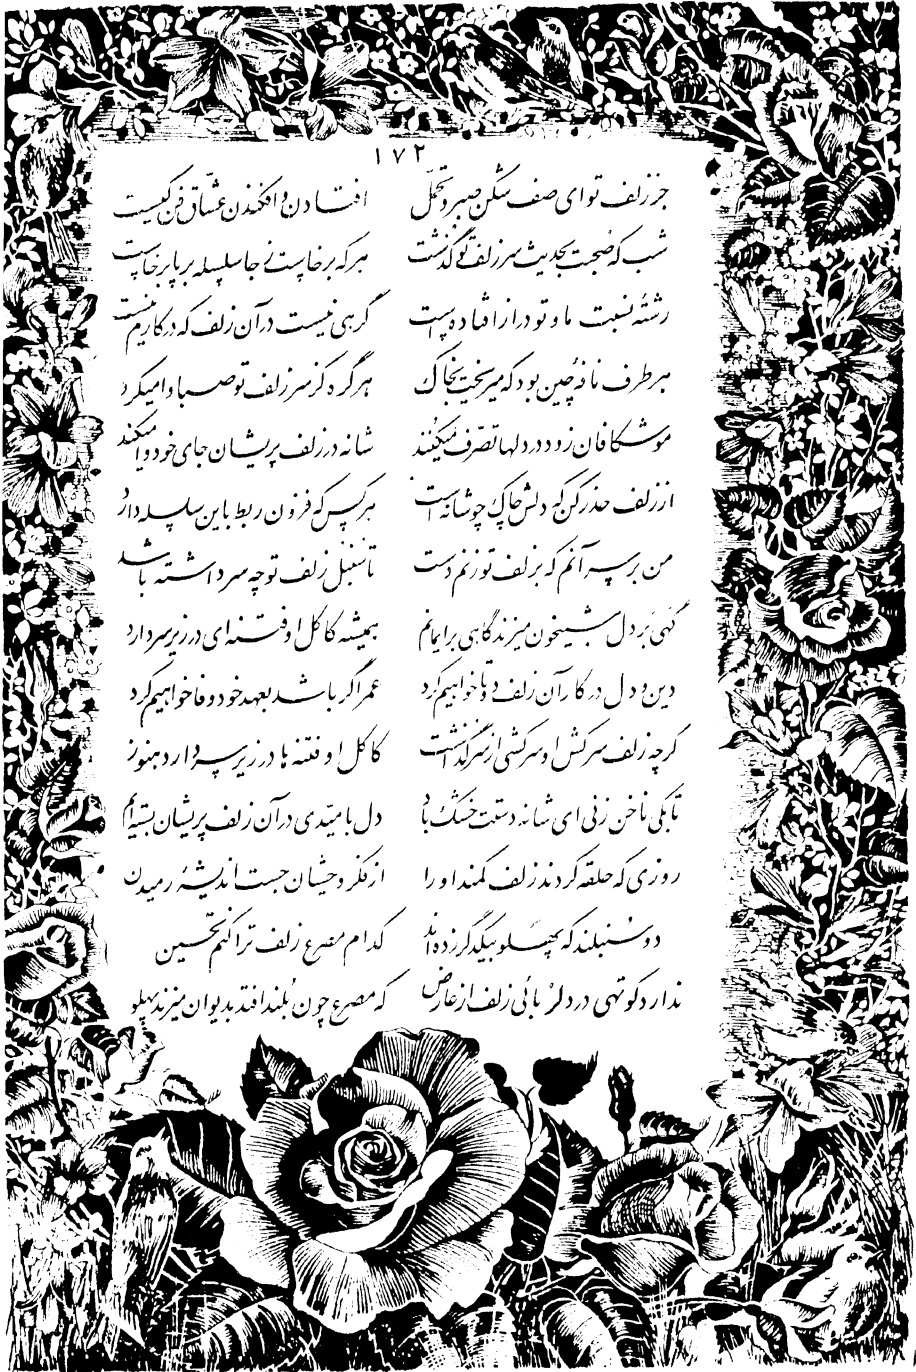 ۱۷۲
جز زلف تو ای صف شکن صبر و تحمل افتادن و افکندن عشاق فن کیست
شب که صحبت بحدیث سر زلف تو گذشت هر که برخاست ز جا سلسله بر پا برخاست
رشتهٔ نسبت ما و تو دراز افتاده است گرهی نیست در آن زلف که در کارم نیست
هر طرف نافهٔ چین بود که میریخت بخاک هر گره کز سر زلف تو صبا وامیکرد
موشکافان زود در دلها تصرف میکنند شانه در زلف پریشان جای خود وا میکند
از زلف حذر کن که دلش چاک چو شانه است هر کس که فزون ربط باین سلسله دارد
من بر سر آنم که بزلف تو زنم دست تا سنبل زلف تو چه سر داشته باشد
گهی بر دل شبیخون میزند گاهی بر ایمانم همیشه کاکل او فتنه‌ای در زیر سر دارد
دین و دل در کار آن زلف دوتا خواهیم کرد عمر اگر باشد بعهد خود وفا خواهیم کرد
گرچه زلف سرکش او سرکشی از سر گذاشت کاکل او فتنه‌ها در زیر سر دارد هنوز
تا بکی ناخن زنی ای شانه دستت خشک باد دل بامیدی در آن زلف پریشان بسته‌ایم
روزی که حلقه کردند زلف کمند او را از فکر وحشیان جست اندیشهٔ رمیدن
دو سنبلند که پهلو بیکدگر زده‌اند کدام مصرع زلف ترا کنم تحسین
ندارد کوتهی در دلربائی زلف از عارض که مصرع چون بلند افتد بدیوان میزند پهلو